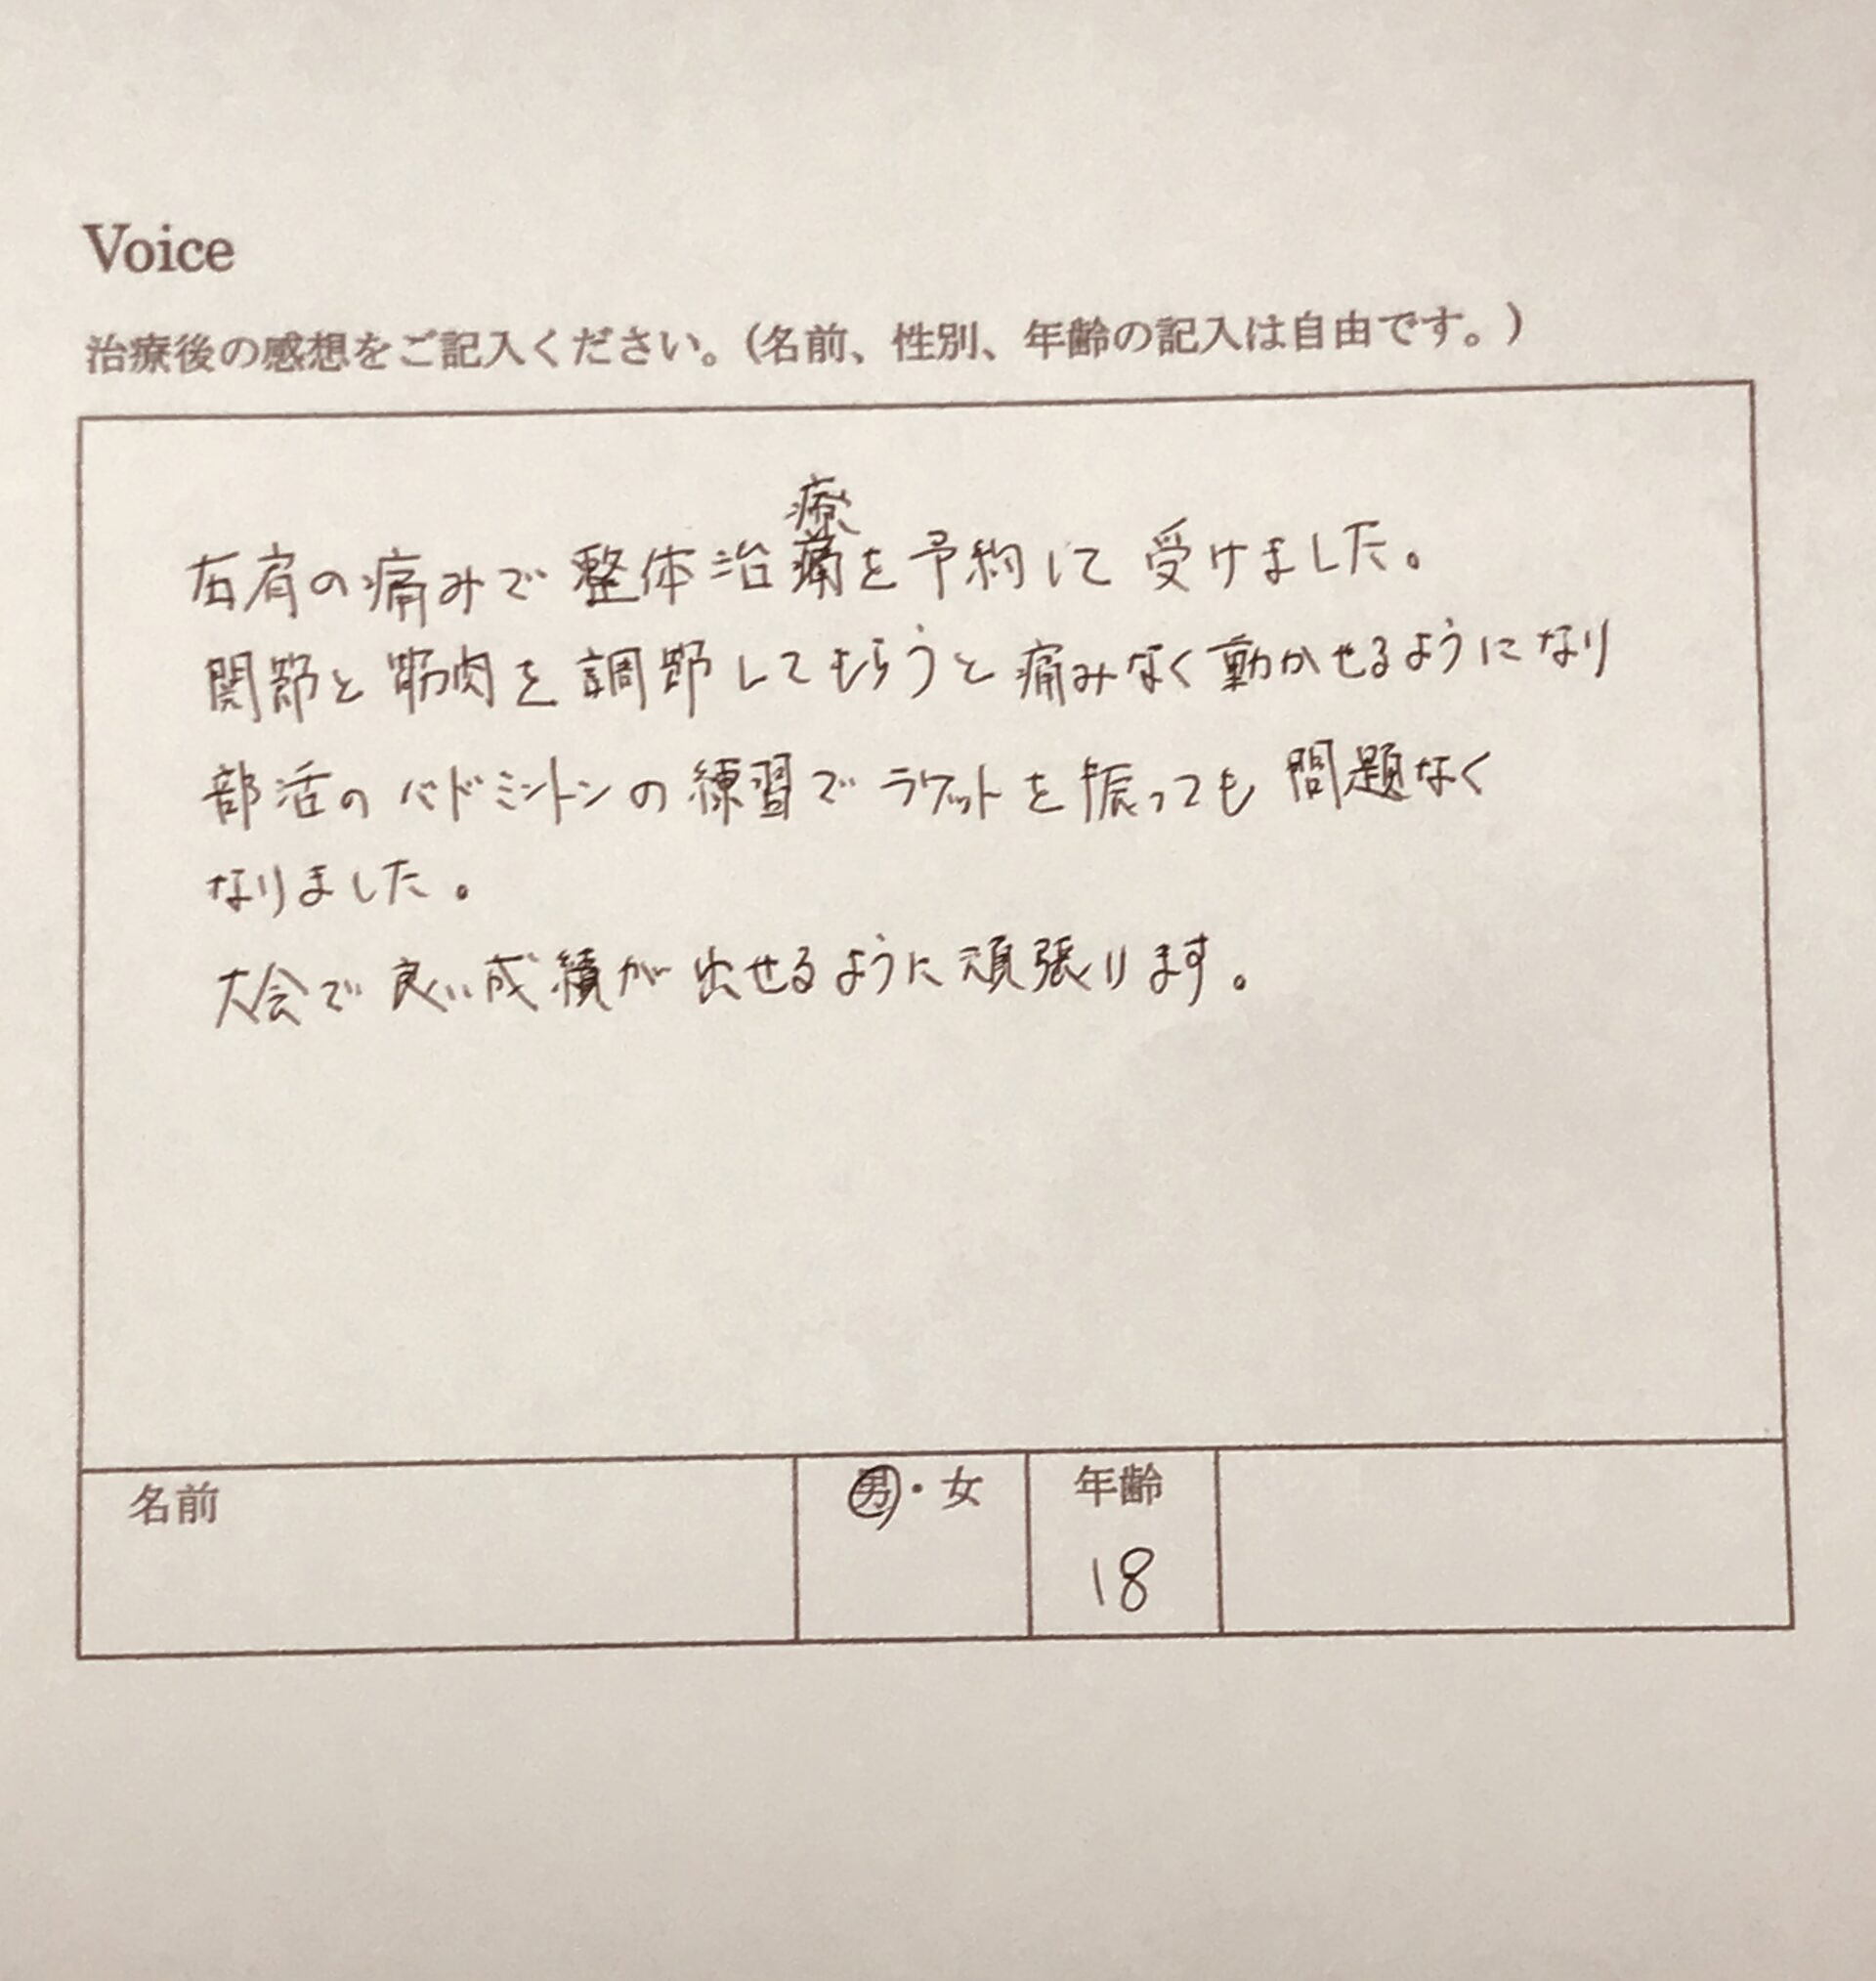 Voice
治療後の感想をご記入ください。(名前、性別、年齢の記入は自由です。)
右肩の痛みで整体治療を予約して受けました。
関節と筋肉を調節してもらうと痛みなく動かせるようになり
部活のバドミントンの練習でラケットを振っても問題なく
なりました。
大会で良い成績が出せるように頑張ります。
名前 男・女 年齢
18